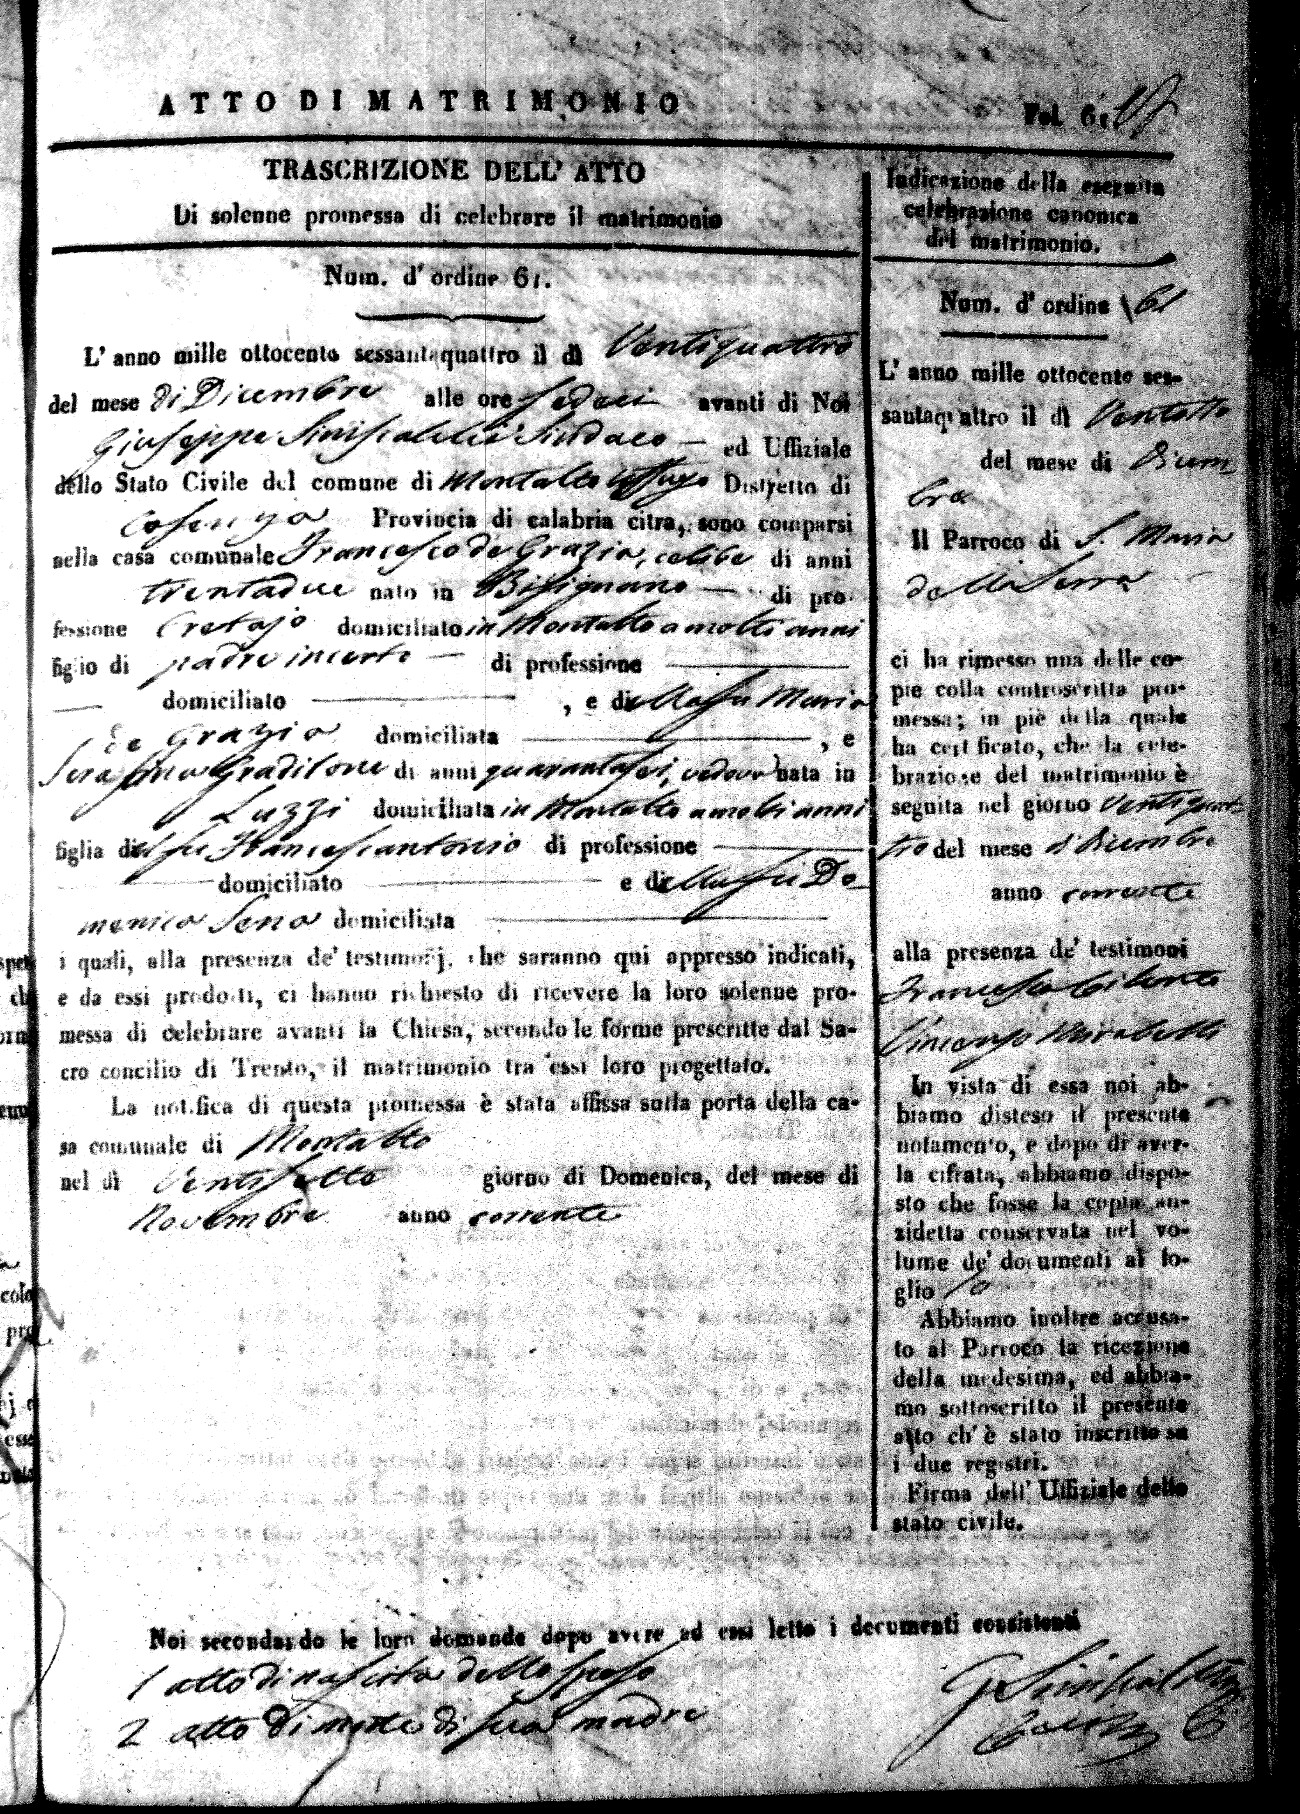 ATTO DI MATRIMONIO
Fol. 61
TRASCRIZIONE DELL' ATTO
Di solenne promessa di celebrare il matrimonio
Num. d' ordine 61.
L' anno mille ottocento sessantaquattro il dì Ventiquattro
del mese di Dicembre alle ore sedeci avanti di Noi
Giuseppe Sindaco — ed Uffiziale
dello Stato Civile del comune di Montalto Uffugo Distretto di
Cosenza Provincia di calabria citra, sono comparsi
nella casa comunale Francesco de Grazia, celibe di anni
trentadue nato in Bisignano — di pro-
fessione Cretajo domiciliato in Montalto a molti anni
figlio di padre incerto — di professione
domiciliato , e della fu Maria
de Grazia domiciliata , e
Serafina Graditone di anni quarantasei, vedova nata in
Luzzi domiciliata in Montalto a molti anni
figlia del fu Francescantonio di professione
domiciliato e della fu Do
menica Sena domiciliata
i quali, alla presenza de' testimonj, che saranno qui appresso indicati,
e da essi prodotti, ci hanno richiesto di ricevere la loro solenne pro-
messa di celebrare avanti la Chiesa, secondo le forme prescritte dal Sa-
cro concilio di Trento, il matrimonio tra essi loro progettato.
La notifica di questa promessa è stata affissa sulla porta della ca-
sa comunale di Montalto
nel dì Ventisette giorno di Domenica, del mese di
Novembre anno corrente
Indicazione della eseguita
celebrazione canonica
del matrimonio.
Num. d' ordine 61
L' anno mille ottocento ses-
santaquattro il dì Ventotto
del mese di Dicem
bre
Il Parroco di S. Maria
della Serra
ci ha rimesso una delle co-
pie colla controscritta pro-
messa; in piè della quale
ha certificato, che la cele-
brazione del matrimonio è
seguita nel giorno Ventiquat
tro del mese di Dicembre
anno corrente
alla presenza de' testimoni
Francesco Cilento
Vincenzo Mirabelli
In vista di essa noi ab-
biamo disteso il presente
notamento, e dopo di aver-
la cifrata, abbiamo dispo-
sto che fosse la copia an-
zidetta conservata nel vo-
lume de' documenti al fo-
glio
Abbiamo inoltre accusa-
to al Parroco la ricezione
della medesima, ed abbia-
mo sottoscritto il presente
atto ch' è stato inscritto su
i due registri.
Firma dell' Uffiziale dello
stato civile.
Noi secondando le loro domande dopo avere ad essi letto i documenti consistenti
1 atto di nascita dello sposo
2 atto di morte di sua madre